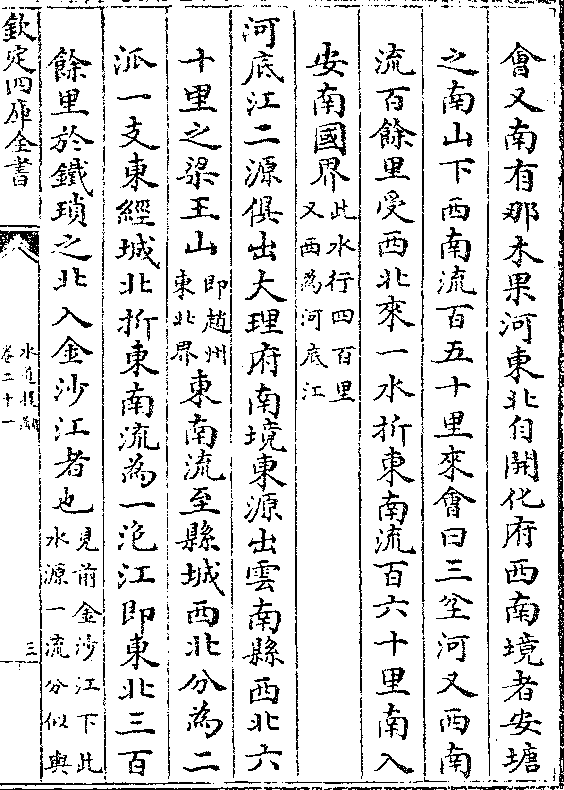 會又南有那木果河東北自開化府西南境者安塘
之南山下西南流百五十里來會曰三岔河又西南
流百餘里受西北來一水折東南流百六十里南入
安南國界此水行四百里又西為河底江
河底江二源俱出大理府南境東源出雲南縣西北六
十里之梁王山即趙州東北界東南流至縣城西北分為二
派一支東經城北折東南流為一泡江即東北三百
餘里於鐵瑣之北入金沙江者也見前金沙江下此水源一流分似與
欽定四庫全書
水道提綱
卷二十一
三